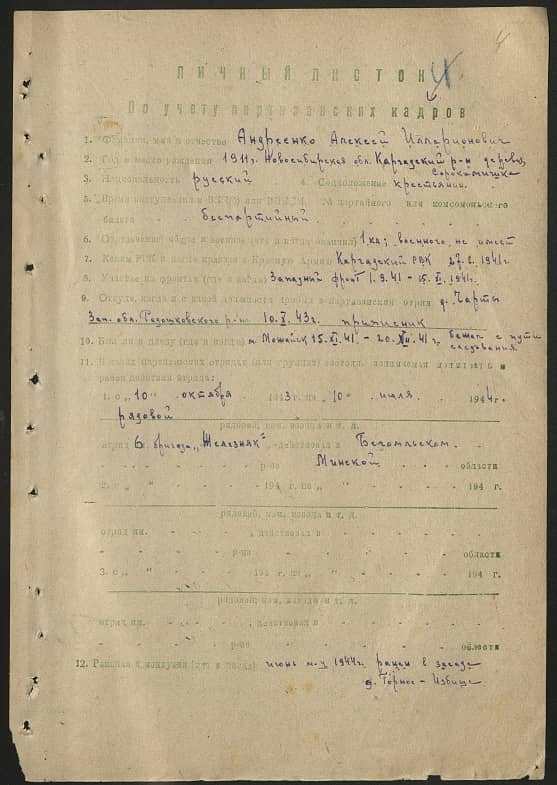 4
4
ЛИЧНЫЙ ЛИСТОК
По учету партизанских кадров
1. Фамилия, имя и отчество Андреенко Алексей Илларионович
2. Год и место рождения 1911г. Новосибирская обл. Каргадский р-н деревня
Сорокамишка
3. Национальность русский 4. Соцположение крестьянин.
5. Время вступления в ВКП(б) или ВЛКСМ, № партийного или комсомольского
билета беспартийный
6. Образование общее и военное 1 кл; военного не имеет
7. Каким РВК и когда призван в Красную Армию Каргадский РВК 1941г
8. Участие на фронтах (где и когда) Западный фронт 1.9.41 - 15.XI.1941г.
9. Откуда, когда и с какой должности прибыл в партизанский отряд д. Чарты
Зап. обл. Радошковского р-на 10.X.43г. приписник
10. Был ли в плену (где и когда) г. Можайск 15.XI.41 - 20.XII.41г. бежал с пути
следования.
11. В каких партизанских отрядах (или группах) состоял, занимаемая должность и
район действия отряда:
1. с „10" октября 1943 г. по „10" июля 1944 г.
рядовой
рядовой, ком. взвода и т. д.
отряд 6 бригада „Железняк", действовал в Бегомльском
р-не Минской области
2. с „ " 194 г. по „ " 194 г.
рядовой, ком. взвода и т. д.
отряд им. , действовал в
р-не области
3. с „ " 194 г. по „ " 194 г.
рядовой, ком. взвода и т. д.
отряд им. , действовал в
р-не области
12. Ранения и контузии (где и когда) июнь м-ц 1944г. ранен в засаде
д. Горное - Избище